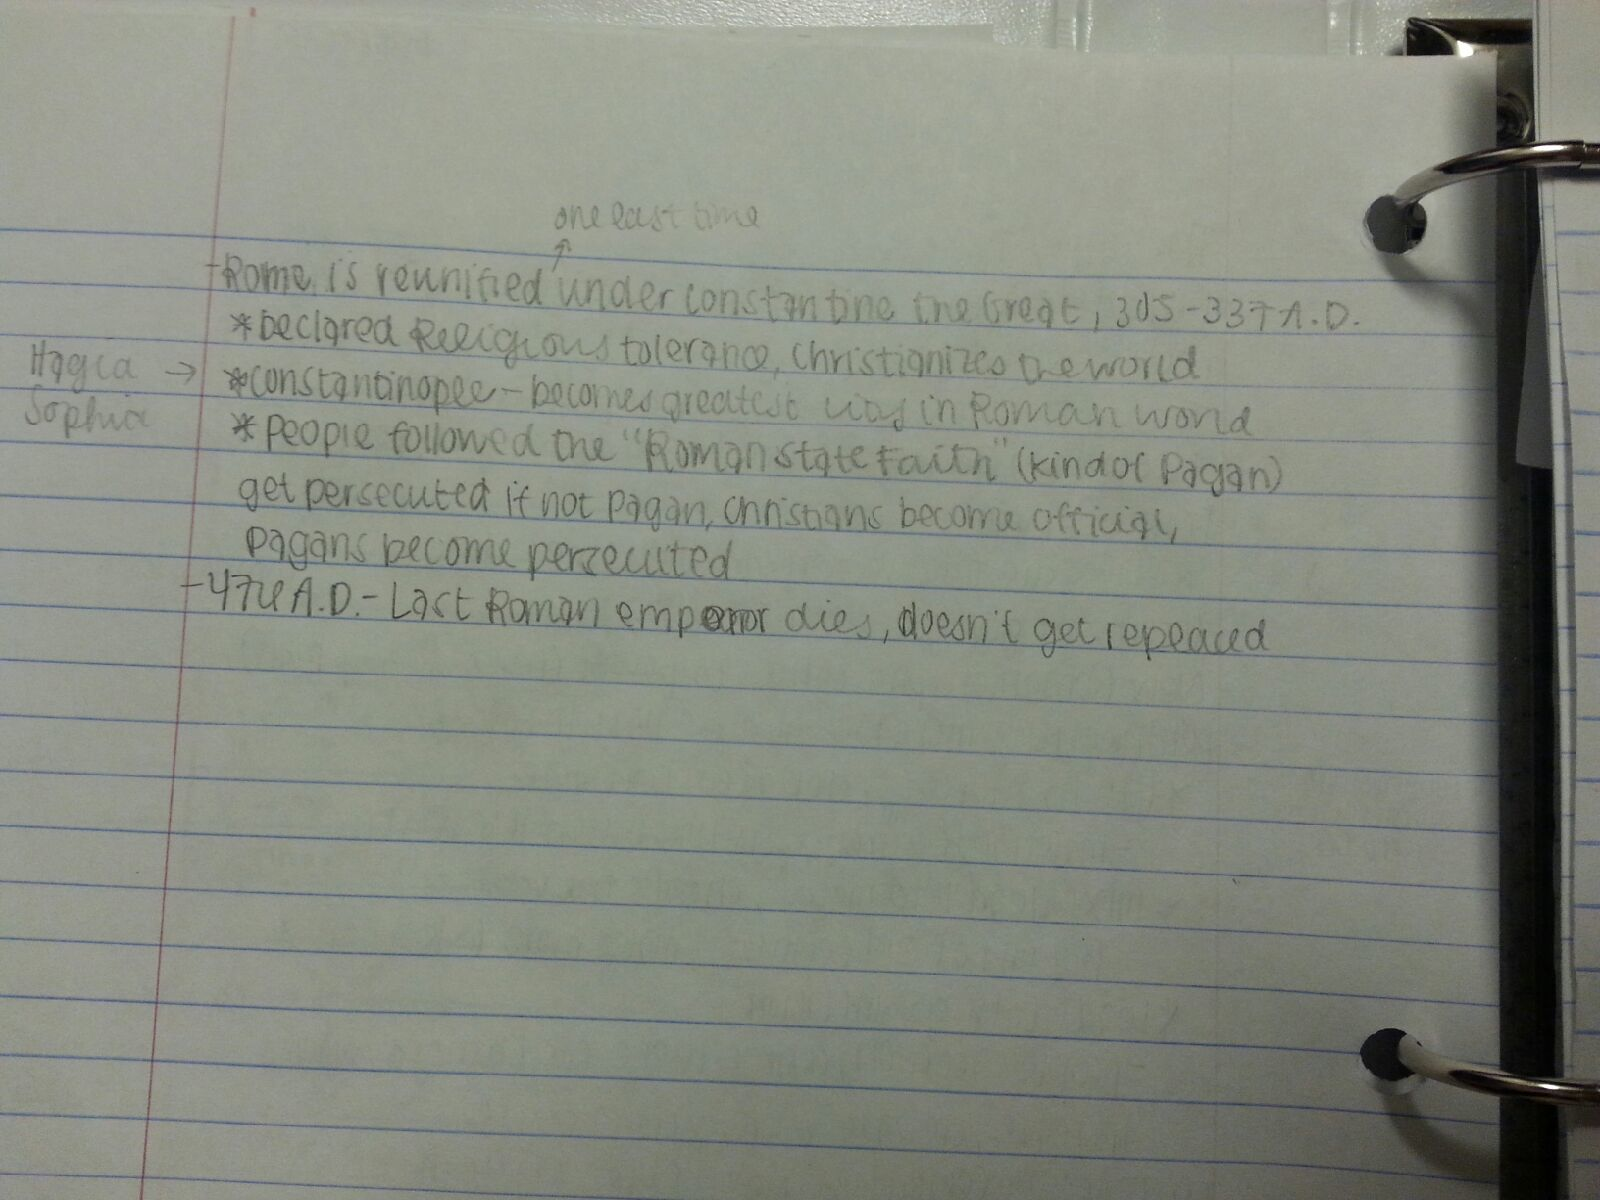 one last time
↑
-Rome is reunified under Constantine the Great, 305-337 A.D.
*Declared Religious tolerance, Christianizes the world
Hagia Sophia → *Constantinople - becomes greatest city in Roman world
*People followed the "Roman State Faith" (kind of Pagan)
get persecuted if not Pagan, Christians become official,
Pagans become persecuted
-474 A.D. - Last Roman emperor dies, doesn't get replaced